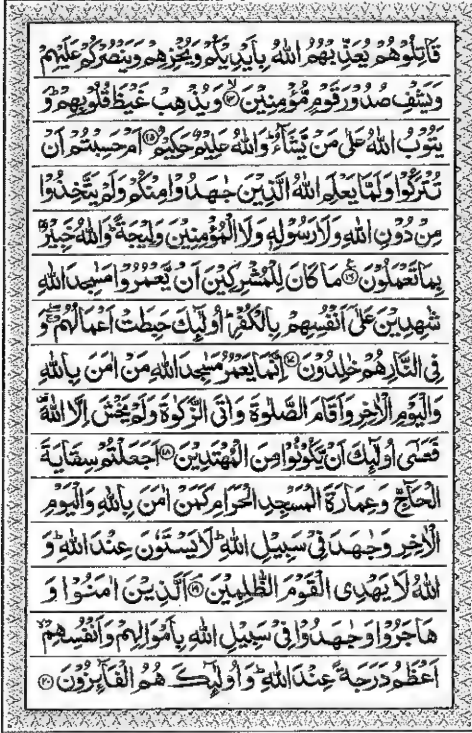 قَاتِلُوْهُمْ يُعَذِّبْهُمُ اللّٰهُ بِاَيْدِيْكُمْ وَيُخْزِهِمْ وَيَنْصُرْكُمْ عَلَيْهِمْ
وَيَشْفِ صُدُوْرَ قَوْمٍ مُّؤْمِنِيْنَ ۙ۝۱۴ وَيُذْهِبْ غَيْظَ قُلُوْبِهِمْ ؕ وَ
يَتُوْبُ اللّٰهُ عَلٰى مَنْ يَّشَآءُ ؕ وَاللّٰهُ عَلِيْمٌ حَكِيْمٌ ۝۱۵ اَمْ حَسِبْتُمْ اَنْ
تُتْرَكُوْا وَلَمَّا يَعْلَمِ اللّٰهُ الَّذِيْنَ جٰهَدُوْا مِنْكُمْ وَلَمْ يَتَّخِذُوْا
مِنْ دُوْنِ اللّٰهِ وَلَا رَسُوْلِهٖ وَلَا الْمُؤْمِنِيْنَ وَلِيْجَةً ؕ وَاللّٰهُ خَبِيْرٌۢ
بِمَا تَعْمَلُوْنَ ۝۱۶ مَا كَانَ لِلْمُشْرِكِيْنَ اَنْ يَّعْمُرُوْا مَسٰجِدَ اللّٰهِ
شٰهِدِيْنَ عَلٰٓى اَنْفُسِهِمْ بِالْكُفْرِ ؕ اُولٰٓئِكَ حَبِطَتْ اَعْمَالُهُمْ ۖۚ وَ
فِى النَّارِ هُمْ خٰلِدُوْنَ ۝۱۷ اِنَّمَا يَعْمُرُ مَسٰجِدَ اللّٰهِ مَنْ اٰمَنَ بِاللّٰهِ
وَالْيَوْمِ الْاٰخِرِ وَاَقَامَ الصَّلٰوةَ وَاٰتَى الزَّكٰوةَ وَلَمْ يَخْشَ اِلَّا اللّٰهَ
فَعَسٰٓى اُولٰٓئِكَ اَنْ يَّكُوْنُوْا مِنَ الْمُهْتَدِيْنَ ۝۱۸ اَجَعَلْتُمْ سِقَايَةَ
الْحَآجِّ وَعِمَارَةَ الْمَسْجِدِ الْحَرَامِ كَمَنْ اٰمَنَ بِاللّٰهِ وَالْيَوْمِ
الْاٰخِرِ وَجٰهَدَ فِيْ سَبِيْلِ اللّٰهِ ؕ لَا يَسْتَوٗنَ عِنْدَ اللّٰهِ ؕ وَ
اللّٰهُ لَا يَهْدِى الْقَوْمَ الظّٰلِمِيْنَ ۝۱۹ اَلَّذِيْنَ اٰمَنُوْا وَ
هَاجَرُوْا وَجٰهَدُوْا فِيْ سَبِيْلِ اللّٰهِ بِاَمْوَالِهِمْ وَاَنْفُسِهِمْ ۙ
اَعْظَمُ دَرَجَةً عِنْدَ اللّٰهِ ؕ وَاُولٰٓئِكَ هُمُ الْفَآئِزُوْنَ ۝۲۰